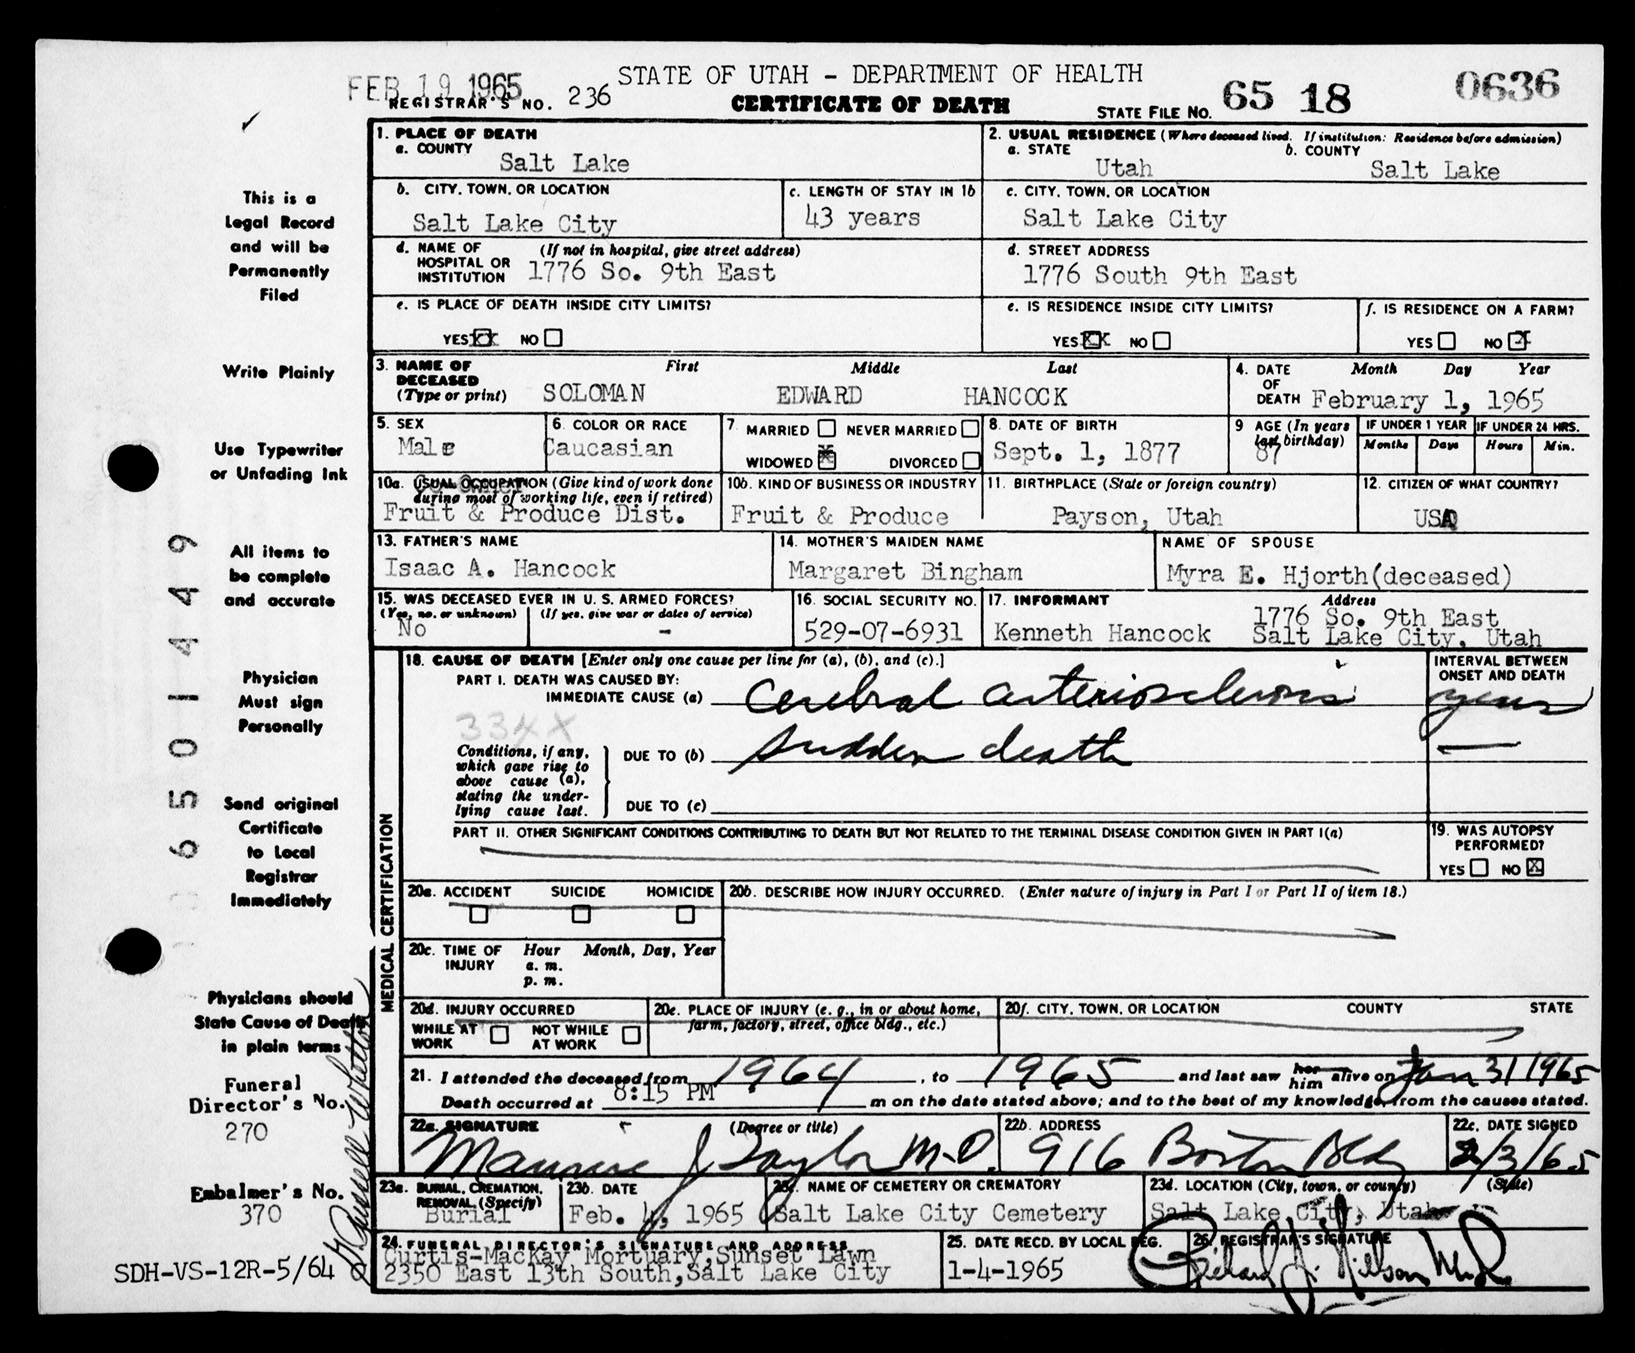 STATE OF UTAH - DEPARTMENT OF HEALTH
FEB 19 1965
REGISTRAR'S NO. 236
CERTIFICATE OF DEATH
STATE FILE NO. 65 18 0636
1. PLACE OF DEATH
a. COUNTY
Salt Lake
2. USUAL RESIDENCE (Where deceased lived. If institution: Residence before admission)
a. STATE b. COUNTY
Utah Salt Lake
b. CITY, TOWN, OR LOCATION
Salt Lake City
c. LENGTH OF STAY IN 1b
43 years
c. CITY, TOWN, OR LOCATION
Salt Lake City
d. NAME OF HOSPITAL OR INSTITUTION (If not in hospital, give street address)
1776 So. 9th East
d. STREET ADDRESS
1776 South 9th East
e. IS PLACE OF DEATH INSIDE CITY LIMITS?
YES XX NO
e. IS RESIDENCE INSIDE CITY LIMITS?
YES XX NO
f. IS RESIDENCE ON A FARM?
YES NO X
3. NAME OF DECEASED (Type or print)
First Middle Last
SOLOMAN EDWARD HANCOCK
4. DATE OF DEATH
Month Day Year
February 1, 1965
5. SEX
Male
6. COLOR OR RACE
Caucasian
7. MARRIED NEVER MARRIED
WIDOWED X DIVORCED
8. DATE OF BIRTH
Sept. 1, 1877
9 AGE (In years last birthday)
87
IF UNDER 1 YEAR
Months Days
IF UNDER 24 HRS.
Hours Min.
10a. USUAL OCCUPATION (Give kind of work done during most of working life, even if retired)
Fruit & Produce Dist.
10b. KIND OF BUSINESS OR INDUSTRY
Fruit & Produce
11. BIRTHPLACE (State or foreign country)
Payson, Utah
12. CITIZEN OF WHAT COUNTRY?
USA
13. FATHER'S NAME
Isaac A. Hancock
14. MOTHER'S MAIDEN NAME
Margaret Bingham
NAME OF SPOUSE
Myra E. Hjorth(deceased)
15. WAS DECEASED EVER IN U. S. ARMED FORCES?
(Yes, no. or unknown) (If yes, give war or dates of service)
No -
16. SOCIAL SECURITY NO.
529-07-6931
17. INFORMANT Address
Kenneth Hancock
1776 So. 9th East
Salt Lake City, Utah
MEDICAL CERTIFICATION
18. CAUSE OF DEATH [Enter only one cause per line for (a), (b), and (c).]
PART I. DEATH WAS CAUSED BY:
IMMEDIATE CAUSE (a) Cerebral arteriosclerosis
INTERVAL BETWEEN ONSET AND DEATH
years
334X
Conditions, if any, which gave rise to above cause (a), stating the underlying cause last.
DUE TO (b) Sudden death —
DUE TO (c)
PART II. OTHER SIGNIFICANT CONDITIONS CONTRIBUTING TO DEATH BUT NOT RELATED TO THE TERMINAL DISEASE CONDITION GIVEN IN PART I(a)
19. WAS AUTOPSY PERFORMED?
YES NO X
20a. ACCIDENT SUICIDE HOMICIDE
20b. DESCRIBE HOW INJURY OCCURRED. (Enter nature of injury in Part I or Part II of item 18.)
20c. TIME OF INJURY
Hour Month, Day, Year
a. m.
p. m.
20d. INJURY OCCURRED
WHILE AT WORK NOT WHILE AT WORK
20e. PLACE OF INJURY (e. g., in or about home, farm, factory, street, office bldg., etc.)
20f. CITY, TOWN, OR LOCATION COUNTY STATE
21. I attended the deceased from 1964, to 1965 and last saw her him alive on Jan 31 1965
Death occurred at 8:15 PM m on the date stated above; and to the best of my knowledge, from the causes stated.
22a. SIGNATURE (Degree or title)
Maurice J Taylor M.D.
22b. ADDRESS
916 Boston Bldg
22c. DATE SIGNED
2/3/65
23a. BURIAL, CREMATION, REMOVAL (Specify)
Burial
23b. DATE
Feb. 4, 1965
23c. NAME OF CEMETERY OR CREMATORY
Salt Lake City Cemetery
23d. LOCATION (City, town, or county) (State)
Salt Lake City, Utah
24. FUNERAL DIRECTOR'S SIGNATURE AND ADDRESS
Curtis-MacKay Mortuary, Sunset Lawn
2350 East 13th South, Salt Lake City
25. DATE RECD. BY LOCAL REG.
1-4-1965
26. REGISTRAR'S SIGNATURE
This is a
Legal Record
and will be
Permanently
Filed
Write Plainly
Use Typewriter
or Unfading Ink
All items to
be complete
and accurate
Physician
Must sign
Personally
Send original
Certificate
to Local
Registrar
Immediately
Physicians should
State Cause of Death
in plain terms
Funeral
Director's No.
270
Embalmer's No.
370
SDH-VS-12R-5/64
6501449